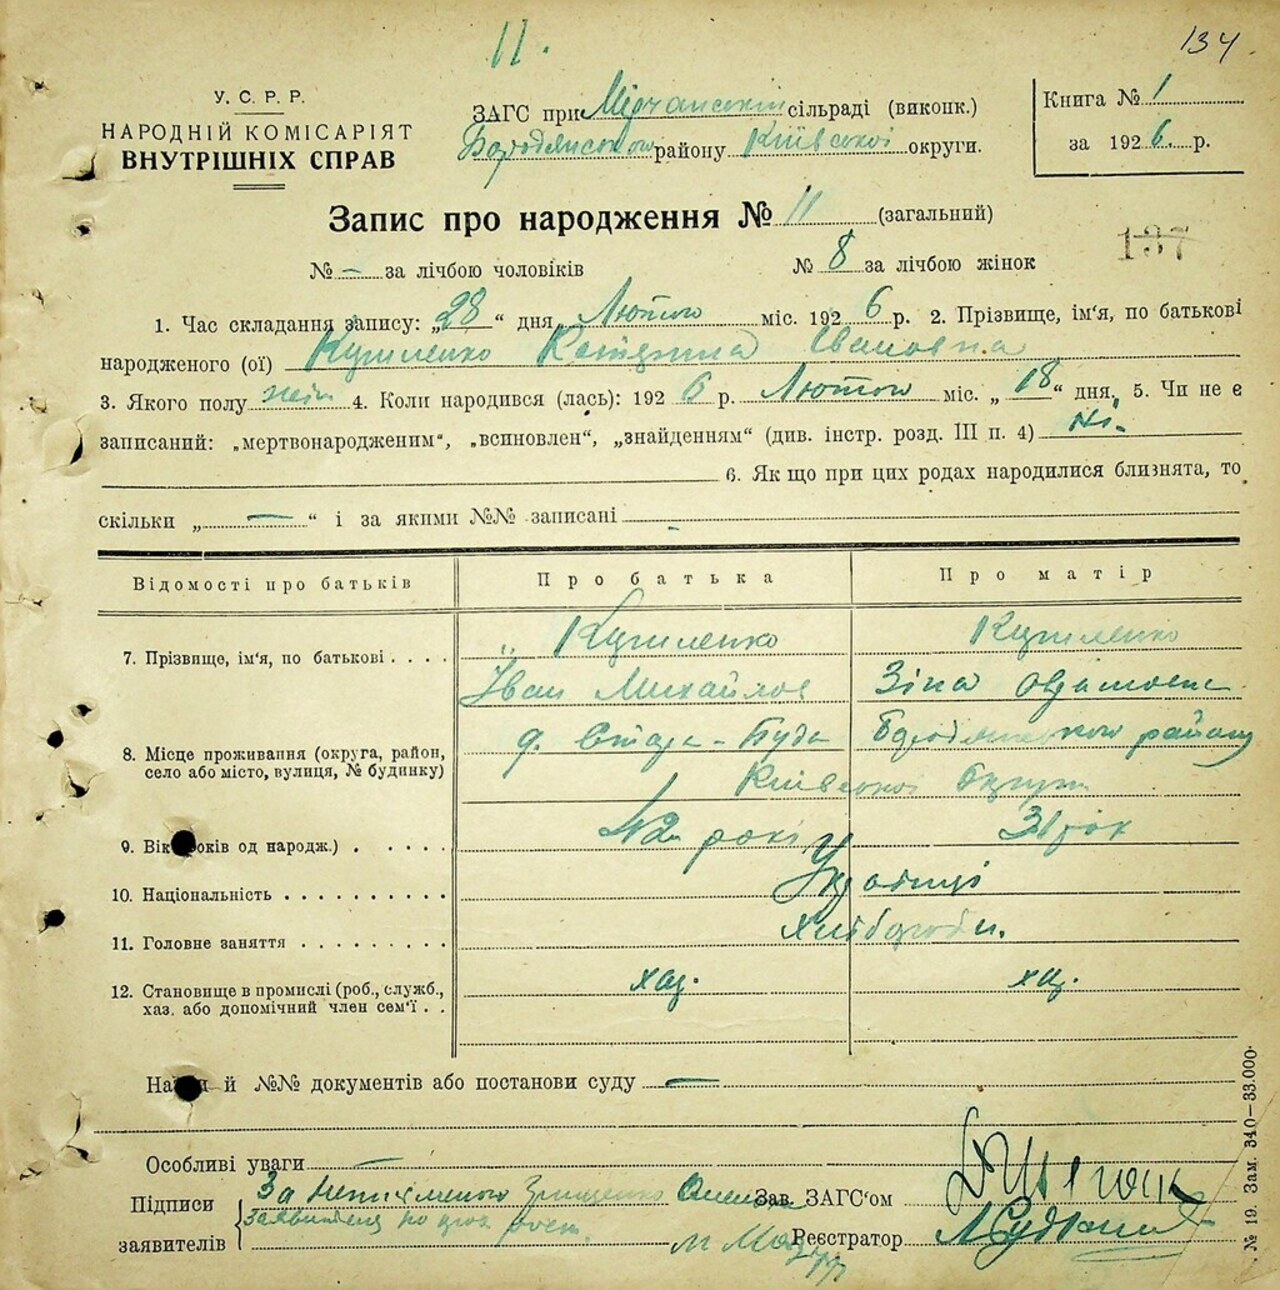 11.
134
У. С. Р. Р.
НАРОДНІЙ КОМІСАРІЯТ
ВНУТРІШНІХ СПРАВ
ЗАГС при Мірчанській сільраді (виконк.)
Бородянського району Київської округи.
Книга № 1
за 1926. р.
Запис про народження № 11 (загальний)
137
№ — за лічбою чоловіків № 8 за лічбою жінок
1. Час складання запису: „28“ дня Лютого міс. 1926 р. 2. Прізвище, ім'я, по батькові
народженого (ої) Катерина Івановна
3. Якого полу жін 4. Коли народився (лась): 1926 р. Лютого міс. „18“ дня. 5. Чи не є
записаний: „мертвонародженим“, „всиновлен“, „знайденням“ (див. інстр. розд. III п. 4) Ні.
6. Як що при цих родах народилися близнята, то
скільки „—“ і за якими №№ записані -
Відомості про батьків Про батька Про матір
7. Прізвище, ім'я, по батькові . . . .
Іван Михайлов Зіна
8. Місце проживання (округа, район,
село або місто, вулиця, № будинку)
д. Стара-Буда Бородянського району
Київської округи
9. Вік років од народж.) . . . . . 42 роки 31 рік
10. Національність . . . . . . . . . . Українці
11. Головне заняття . . . . . . . . . Хлібороби.
12. Становище в промислі (роб., служб.,
хаз. або допомічний член сем'ї . .
хаз. хаз.
На й №№ документів або постанови суду —
Особливі уваги —
Підписи
заявителів
За неписьменого Грищенко
Зав. ЗАГС'ом
Реєстратор
№ 19. Зам. 340—33.000.